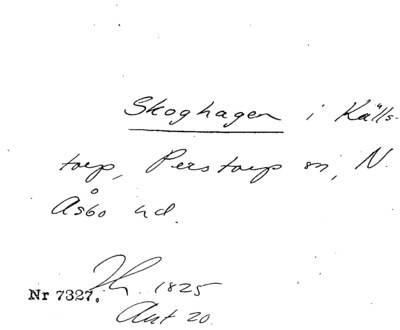 Skoghagen i Källs-
torp, Perstorp sn, N.
Åsbo hd.
Nr 7327. 1825
Akt 20